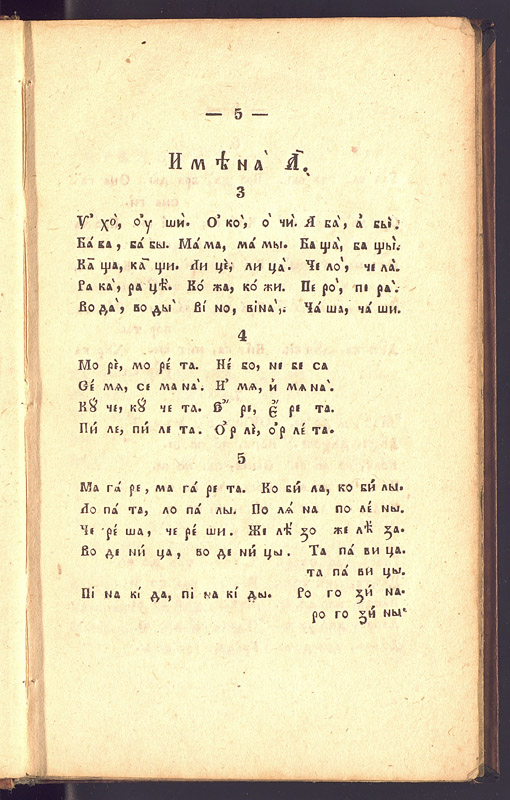 — 5 —
Имѣна̀ А҃.
3
Ѵ҆ хо̀, о҆у ши̑. О҆ ко̀, о҆ чи̑. Я ба̀, а҆ бы̀.
Ба́ ба, ба́ бы. Ма́ ма, ма́ мы. Ба ща̀, ба щы̀.
Ка́ ша, ка́ ши. Ли цѐ, ли ца̀. Че ло̀, че ла̀.
Ра ка̀, ра цѣ̀. Ко́ жа, ко́ жи. Пе ро̀, пе ра̀.
Во да̀, во ды̀ Ві́ но, віна̀. Ча́ ша, ча́ ши.
4
Мо рѐ, мо ре́ та. Не́ бо, не бе са
Се́ мѧ, се мана̀. И҆́ мѧ, и҆ мѧна̀.
Кꙋ́ че, кꙋ́ че та. Е҆́ ре, е҆́ ре та.
Пи́ ле, пи́ ле та. Ѻ҆р лѐ, ѻ҆р ле́ та.
5
Ма га́ ре, ма га́ ре та. Ко би́ ла, ко би́ лы.
Ло па́ та, ло па́ лы. По лѧ́ на по ле́ ны.
Че ре́ ша, че ре́ ши. Же лѣ́ зо же лѣ́ за.
Во де ни́ ца, во де ни́ цы. Та па́ ви ца.
та па́ ви цы.
Пі́ на кі́ да, пі́ на кі́ ды. Ро го зи́ на.
ро го зи́ ны.